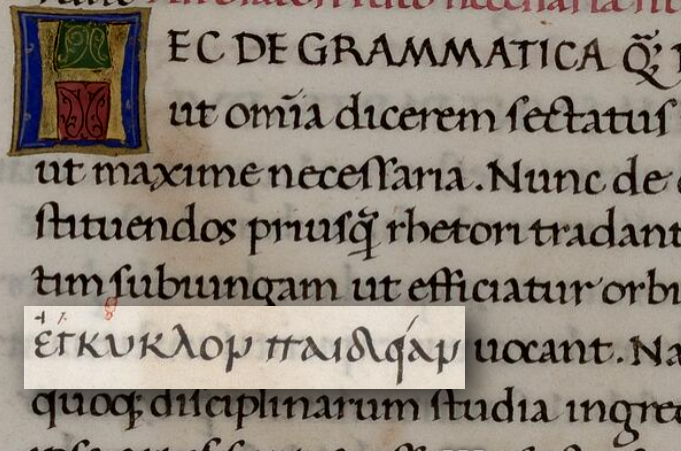 HEC DE GRAMMATICA Q̃;
ut om̅ia dicerem ſectatus
ut maxime neceſſaria. Nunc de
ſtituendos priusq̃ rhetori tradant
tim ſubiungam ut efficiatur orbi
ἐγκύκλον παιδείαν uocant. Na
quoq; diſciplinarum ſtudia ingre